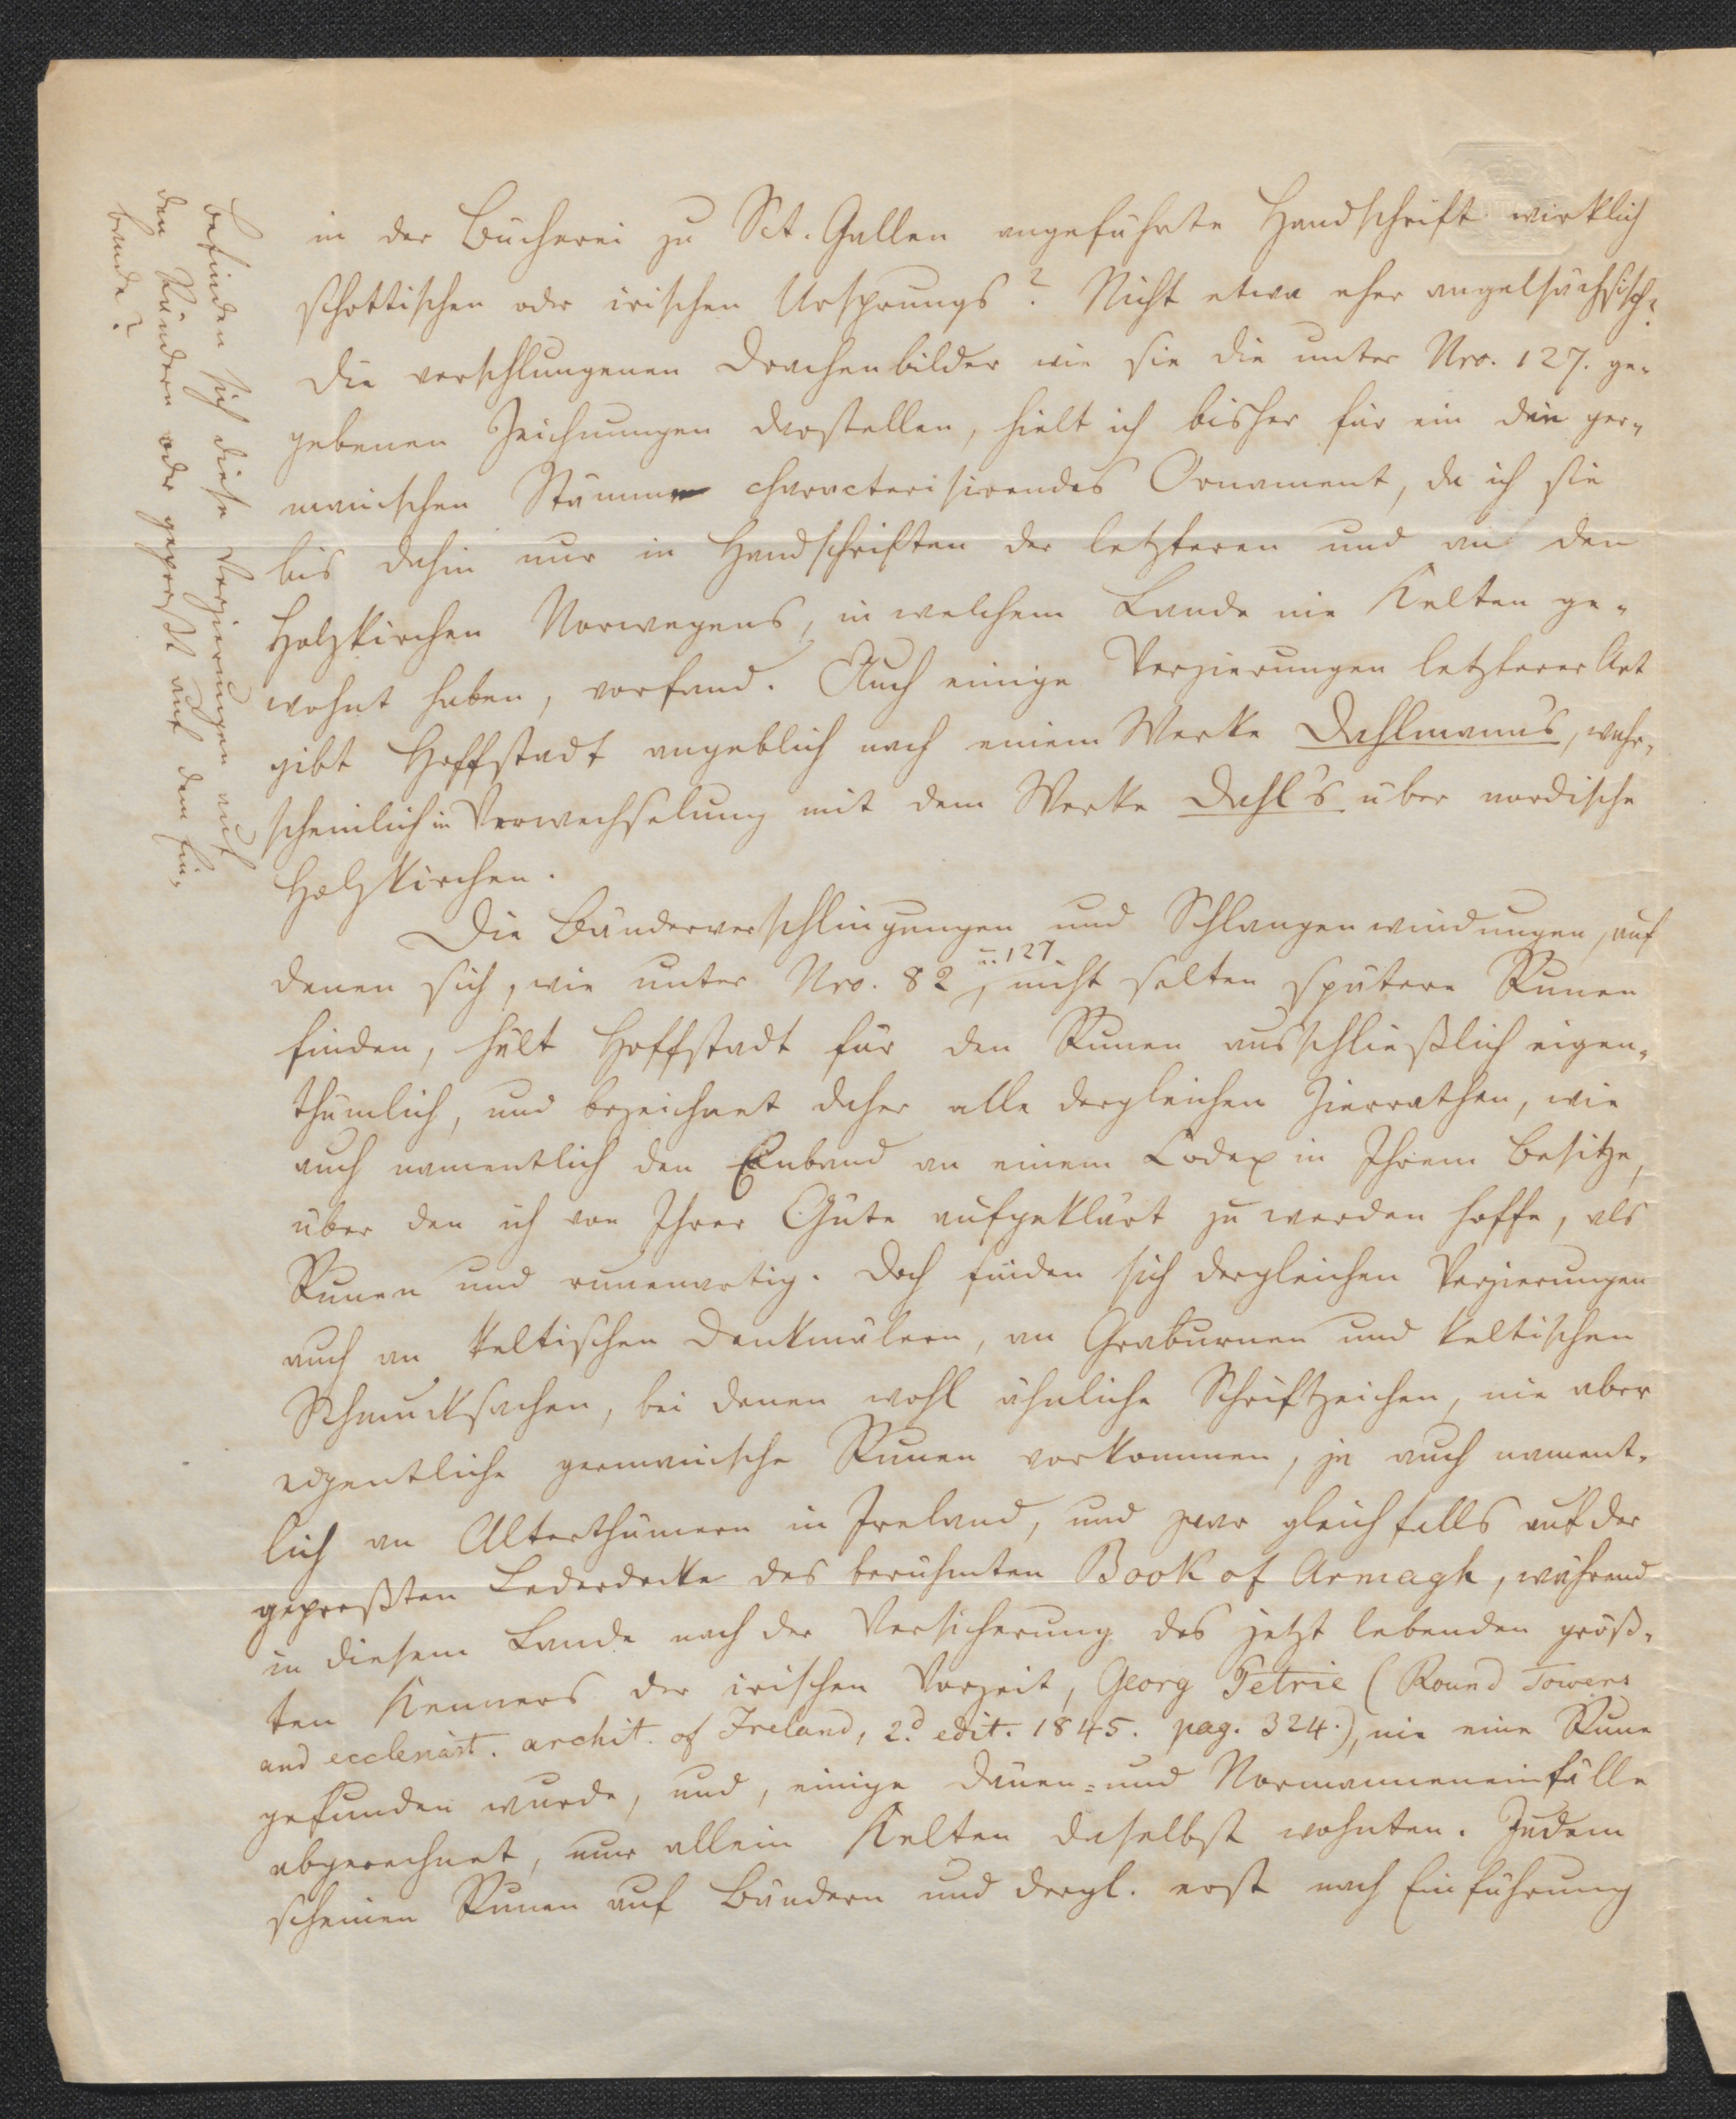 in der Bücherei zu Sct. Gallen angeführte Handschrift wirklich
schottischen oder irischen Ursprungs? Nicht etwa eher angelsächsisch?
Die verschlungenen Drachenbilder wie sie die unter Nro. 127. ge-
gebenen Zeichnungen darstellen, hielt ich bisher für ein die ger-
manischen Stämme characterisirendes Ornament, da ich sie
bis dahin nur in Handschriften der letzteren und an den
Holzkirchen Norwegens, in welchem Lande nie Kelten ge-
wohnt haben, vorfand. Auch einige Verzierungen letzterer Art
gibt Hoffstadt angeblich nach einem Werke Dahlmann's, wahr-
scheinlich in Verwechselung mit dem Werke Dahl's über nordische
Holzkirchen.
Die Bänderverschlingungen und Schlangenwindungen, auf
denen sich, wie unter Nro. 82 u. 127., nicht selten spätere Runen
finden, hält Hoffstadt für den Runen ausschließlich eigen-
thümlich, und bezeichnet daher alle dergleichen Zierrathen, wie
auch namentlich den Einband an einem Codex in Ihrem Besitze,
über den ich von Ihrer Güte aufgeklärt zu werden hoffe, als
Runen und runenartig. Doch finden sich dergleichen Verzierungen
auch an keltischen Denkmälern, an Graburnen und keltischen
Schmucksachen, bei denen wohl ähnliche Schriftzeichen, nie aber
eigentliche germanische Runen vorkommen, ja auch nament-
lich an Alterthümern in Ireland, und zwar gleichfalls auf der
gepreßten Lederdecke des berühmten Book of Armagh, während
in diesem Lande nach der Versicherung des jetzt lebenden größ-
ten Kenners der irischen Vorzeit, Georg Petrie (Round Towers
and ecclesiast. archit. of Ireland, 2d edit. 1845. pag. 324.), nie eine Rune
gefunden wurde, und, einige Dänen- und Normanneneinfälle
abgerechnet, nur allein Kelten daselbst wohnten. Zudem
scheinen Runen auf Bändern und dergl. erst nach Einführung
befinden sich diese Verzierungen auf
den Rändern oder gepreßt auf dem Ein-
bande?